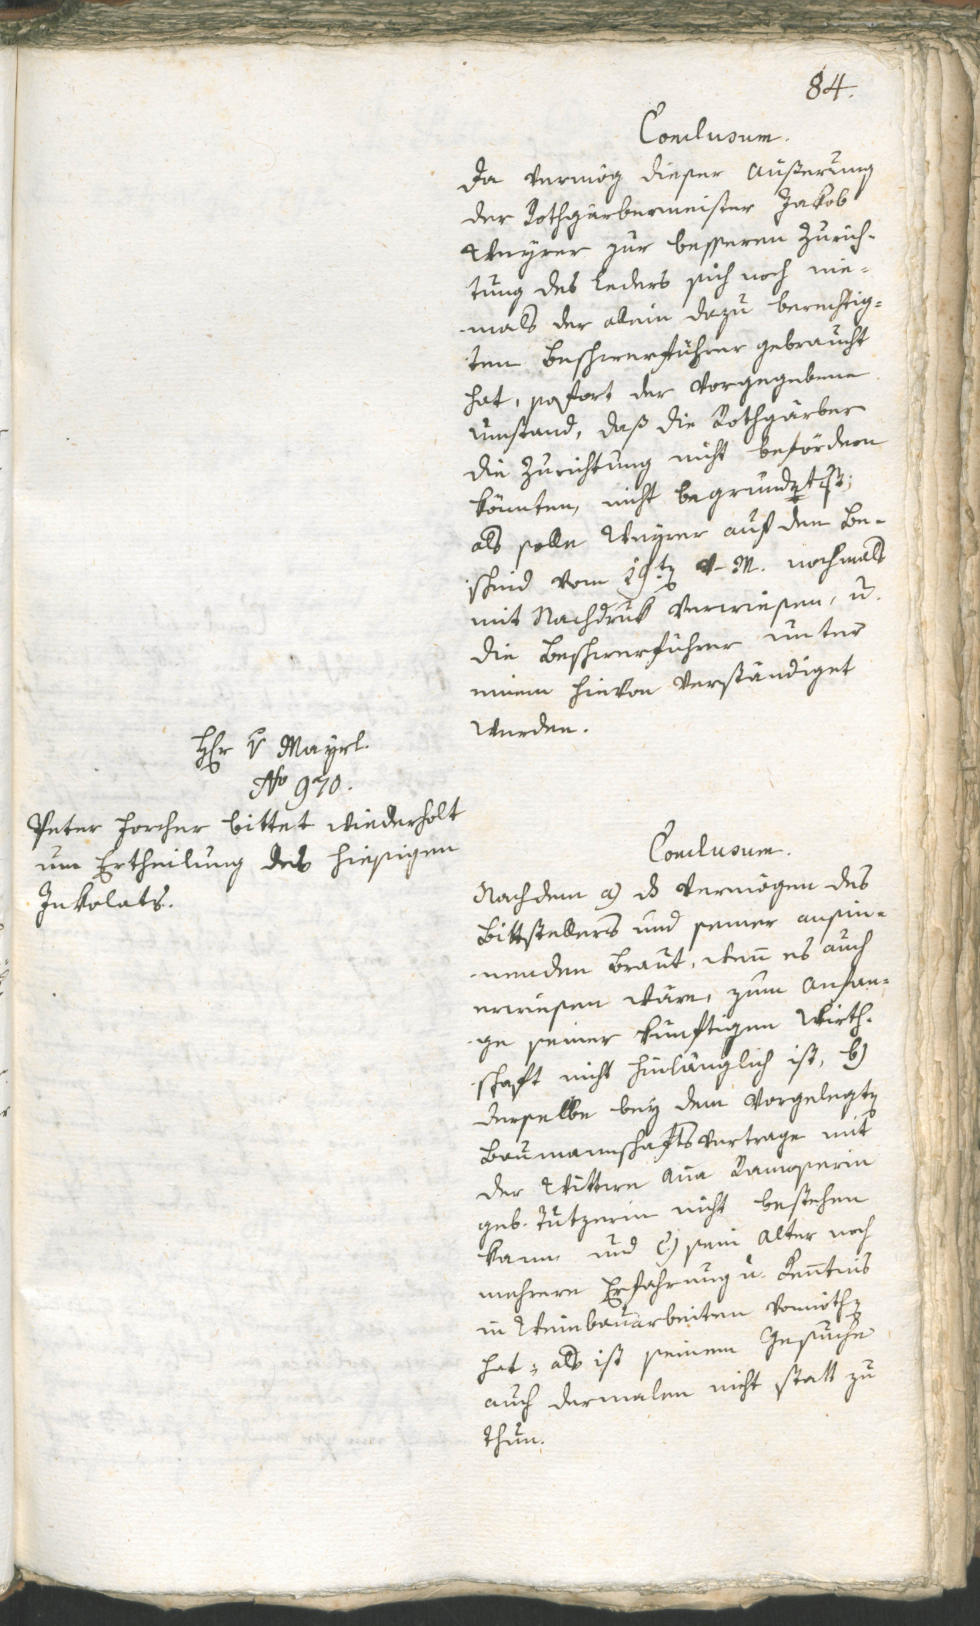 84.
Conclusum.
Da vermög dieser Äußerung
der Rothgärbermeister Jakob
Weyrer zur besseren Zurich-
tung des Leders sich noch nie-
mals der allein dazu berechtig-
ten Beschwerführer gebraucht
hat, sofort der vorgegebene
Umstand, daß die Rothgärber
die Zurichtung nicht befördern
könnten, nicht begründet ist;
als solle Weyrer auf den Be-
scheid vom 19ten v. M. nochmals
mit Nachdruk verwiesen, u.
die Beschwerführer unter
einem hievon verständiget
werden.
Hr v Mayrl.
No 970.
Peter Horcher bittet wiederholt
um Ertheilung des hiesigen
Inkolats.
Conclusum.
Nachdem a) das Vermögen des
Bittstellers und seiner ansin-
nenden Braut, wenn es auch
erwiesen wäre, zum Anfan-
ge seiner künftigen Wirth-
schaft nicht hinlänglich ist, b)
derselbe bey dem vorgelegten
Baumannschaftsvertrage mit
der Wittwe Ana Ramoserin
geb. Tutzerin nicht bestehen
kann und c) sein Alter noch
mehrere Erfahrung u. Kentnis
in Weinbauarbeiten vonnöthen
hat; als ist seinem Gesuche
auch dermalen nicht statt zu
thun.